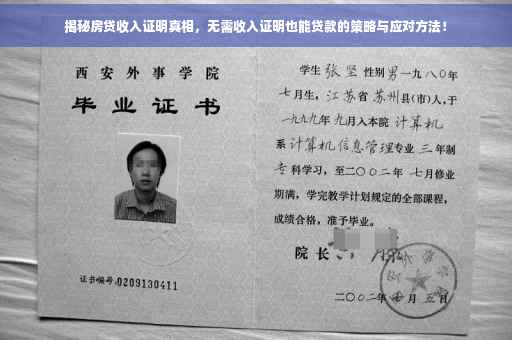 揭秘房贷收入证明真相，无需收入证明也能贷款的策略与应对方法！
西安外事学院
毕业证书
证书编号:0209130411
学生 张坚 性别 男 一九八〇年
七月生，江苏省 苏州县(市)人，于
一九九九年 九月入本院 计算机
系 计算机信息管理专业 三 年制
专 科学习，至二〇〇二年 七月修业
期满，学完教学计划规定的全部课程，
成绩合格，准予毕业。
院长
二〇〇二年 月 五日